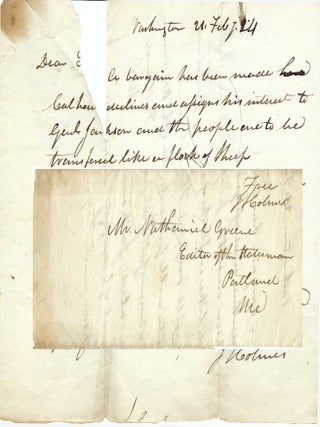 Washington 21. Feby. 24
Dear
A bargain has been made
Calhoun declines and assigns his interest to
Genl. Jackson and the people are to be
transferred like a flock of sheep
Free
J Holmes
Mr. Nathaniel Greene
Editor of the Statesman
Portland
Me
J Holmes